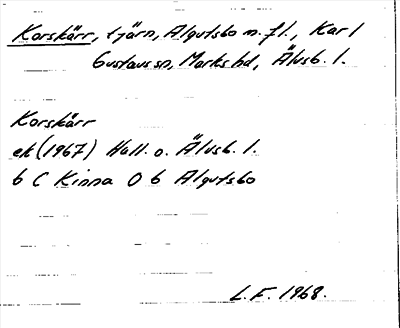 Korskärr, tjärn, Algutsbo m.fl., Karl
Gustavs sn, Marks hd, Älvsb. l.
Korskärr
ek (1967) Hall. o. Älvsb. l.
6 C Kinna 0 b Algutsbo
L.F. 1968.